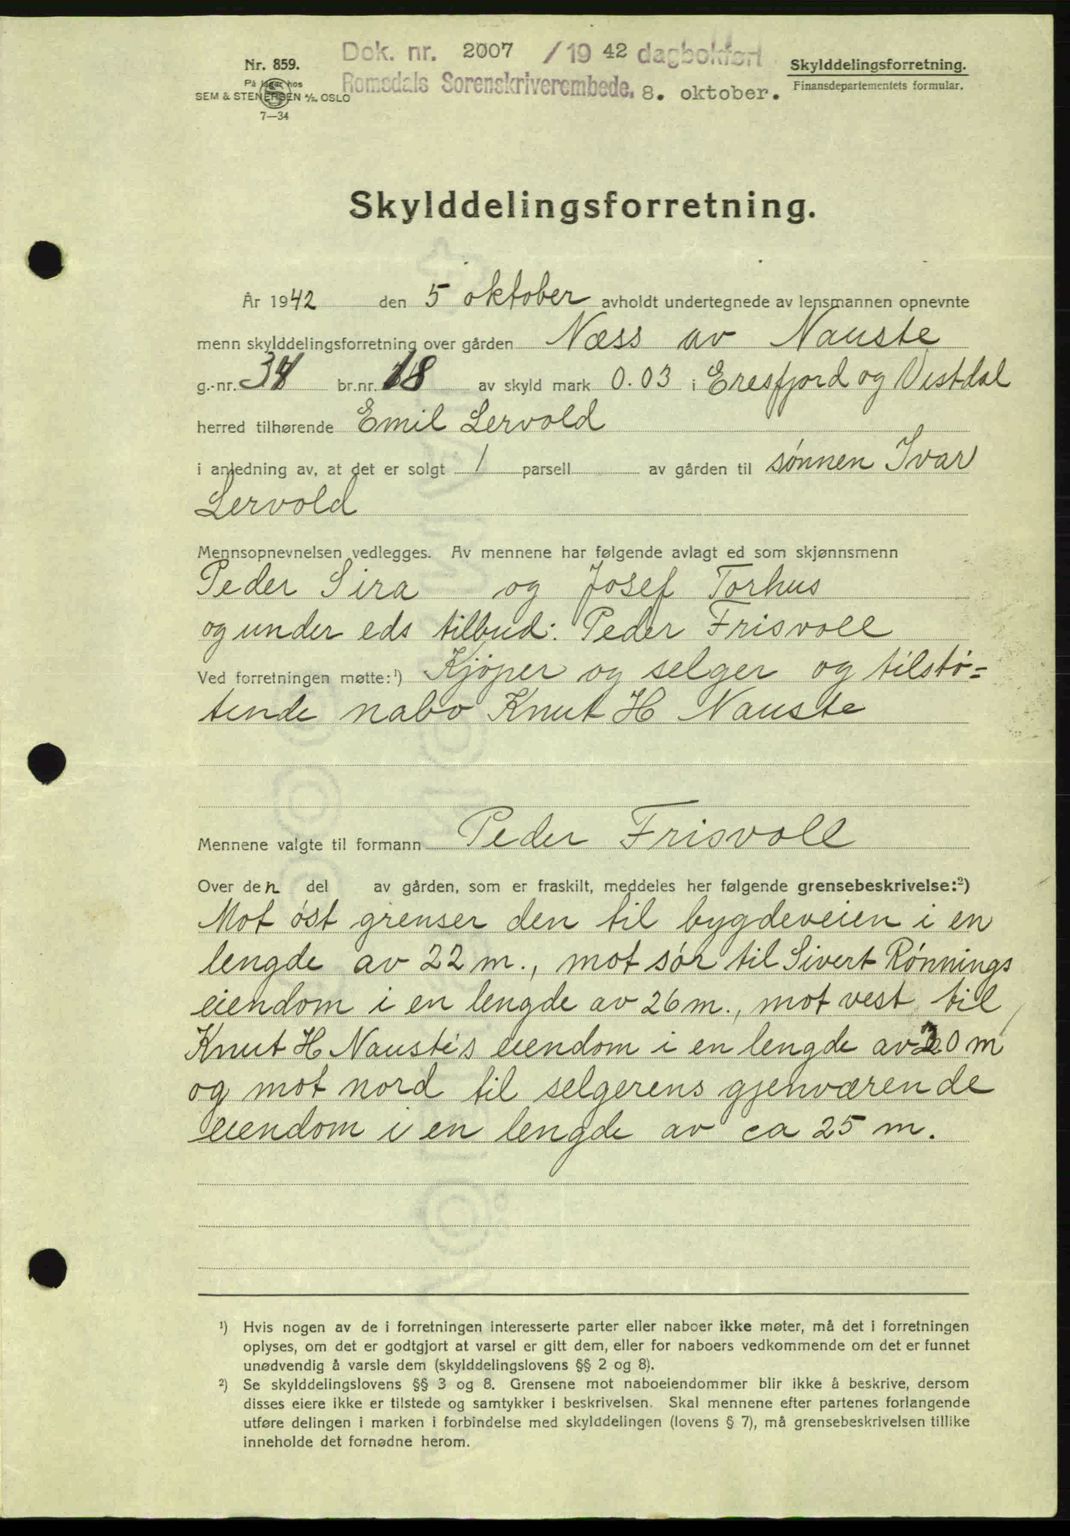 Dok. nr. 2007 / 19 42 dagbokført
Romsdals Sorenskriverembede. 8. oktober.
Nr. 859.
På lager hos
SEM & STENERSEN A/S, OSLO
7—34
Skylddelingsforretning.
Finansdepartementets formular.
Skylddelingsforretning.
År 1942 den 5 oktober avholdt undertegnede av lensmannen opnevnte
menn skylddelingsforretning over gården Næss av Nauste
g.-nr. 34 br.nr. 18 av skyld mark 0.03 i Eresfjord og Vistdal
herred tilhørende Emil Lervold
i anledning av, at det er solgt 1 parsell av gården til sønnen Ivar
Lervold
Mennsopnevnelsen vedlegges. Av mennene har følgende avlagt ed som skjønnsmenn
Peder Sira og Josef Torhus
og under eds tilbud: Peder Frisvoll
Ved forretningen møtte:¹) Kjøper og selger og tilstø=
tende nabo Knut H Nauste
Mennene valgte til formann Peder Frisvoll
Over den del av gården, som er fraskilt, meddeles her følgende grensebeskrivelse:²)
Mot øst grenser den til bygdeveien i en
lengde av 22 m., mot sør til Sivert Rønnings
eiendom i en lengde av 26 m., mot vest til
Knut H Naustes eiendom i en lengde av 30 m
og mot nord til selgerens gjenværende
eiendom i en lengde av ca 25 m.
¹) Hvis nogen av de i forretningen interesserte parter eller naboer ikke møter, må det i forretningen
oplyses, om det er godtgjort at varsel er gitt dem, eller for naboers vedkommende om det er funnet
unødvendig å varsle dem (skylddelingslovens §§ 2 og 8).
²) Se skylddelingslovens §§ 3 og 8. Grensene mot naboeiendommer blir ikke å beskrive, dersom
disses eiere ikke er tilstede og samtykker i beskrivelsen. Skal mennene efter partenes forlangende
utføre delingen i marken i forbindelse med skylddelingen (lovens § 7), må grensebeskrivelsen tillike
inneholde det fornødne herom.